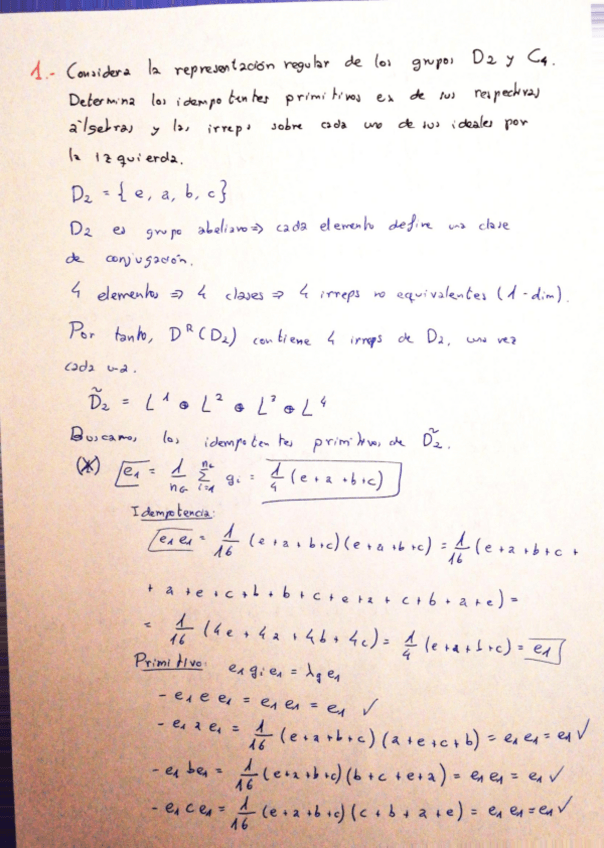 1.- Considera la representación regular de los grupos D2 y C4.
Determina los idempotentes primitivos en de sus respectivas
álgebras y las irreps sobre cada uno de sus ideales por
la izquierda.
D₂ = { e, a, b, c }
D₂ es grupo abeliano ⇒ cada elemento define una clase
de conjugación.
4 elementos ⇒ 4 clases ⇒ 4 irreps no equivalentes (1-dim).
Por tanto, Dᴿ(D₂) contiene 4 irreps de D₂, una vez
cada una.
D̃₂ = L¹ ⊕ L² ⊕ L³ ⊕ L⁴
Buscamos los idempotentes primitivos de D̃₂.
(*) e₁ = 1/n_G Σ_{i=1}^{n_G} gᵢ = 1/4 (e + a + b + c)
Idempotencia:
e₁e₁ = 1/16 (e+a+b+c)(e+a+b+c) = 1/16 (e+a+b+c +
+ a + e + c + b + b + c + e + a + c + b + a + e) =
= 1/16 (4e + 4a + 4b + 4c) = 1/4 (e+a+b+c) = e₁
Primitivo: e₁ gᵢ e₁ = λg e₁
- e₁ e e₁ = e₁ e₁ = e₁ ✓
- e₁ a e₁ = 1/16 (e+a+b+c)(a+e+c+b) = e₁e₁ = e₁ ✓
- e₁ b e₁ = 1/16 (e+a+b+c)(b+c+e+a) = e₁e₁ = e₁ ✓
- e₁ c e₁ = 1/16 (e+a+b+c)(c+b+a+e) = e₁ e₁ = e₁ ✓